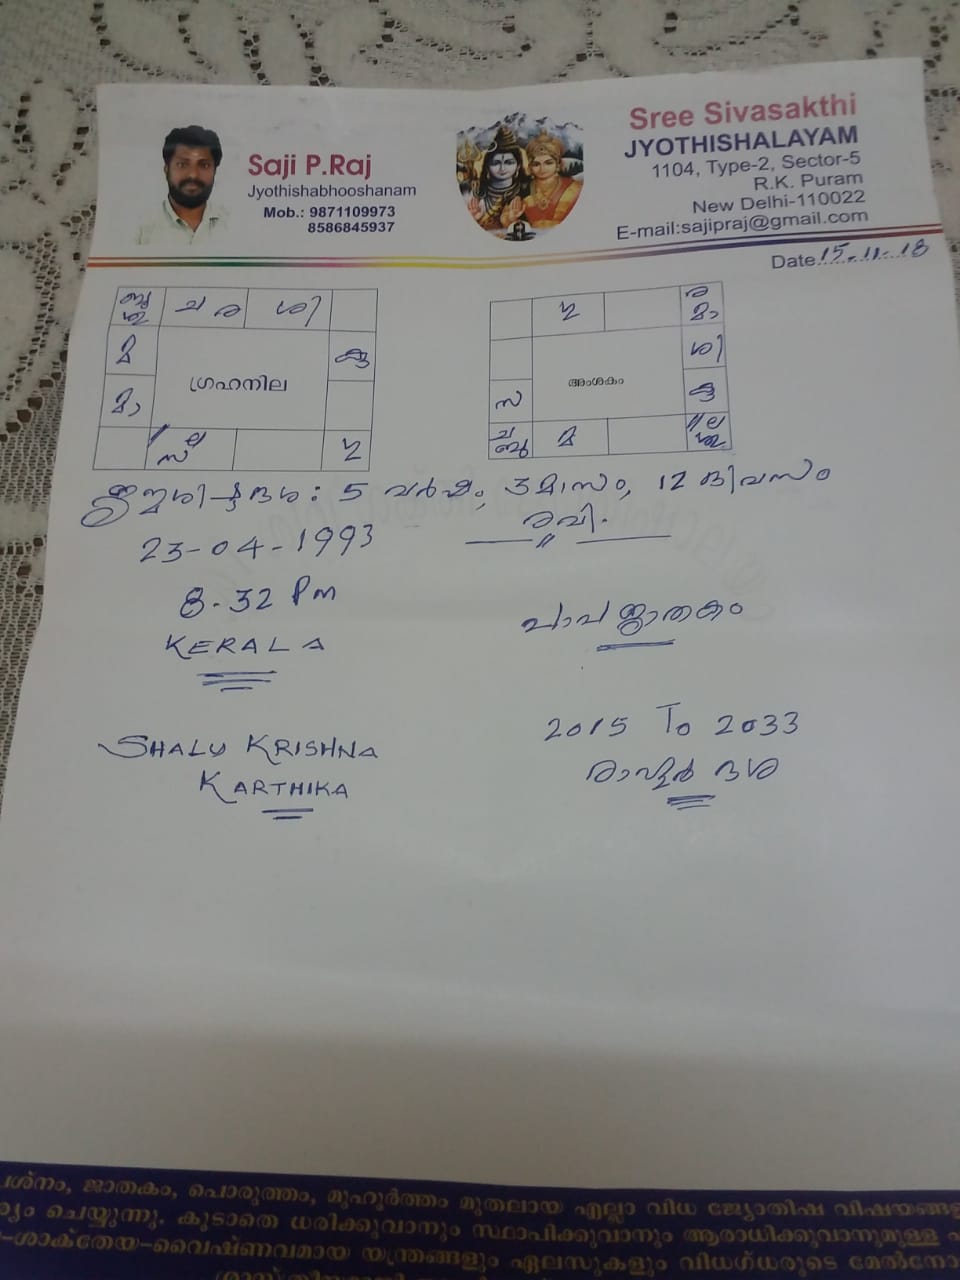 Saji P.Raj
Jyothishabhooshanam
Mob.: 9871109973
8586845937
Sree Sivasakthi
JYOTHISHALAYAM
1104, Type-2, Sector-5
R.K. Puram
New Delhi-110022
E-mail:sajipraj@gmail.com
Date 15.11.18
ബു ച ര ശി
ശു
മ കു
ഗ്രഹനില
മാ
ല
സ
ര
മാ
ശി
അംശകം
കു
സ
ച മ ല
ബു ശു
ശിഷ്ടദശ: 5 വർഷം, 3 മാസം, 12 ദിവസം
രവി.
23-04-1993
8-32 Pm
KERALA
പാപജാതകം
2015 To 2033
രാഹൂർ ദശ
SHALU KRISHNA
KARTHIKA
ശ്നം, ജാതകം, പൊരുത്തം, മുഹൂർത്തം മുതലായ എല്ലാ വിധ ജ്യോതിഷ വിഷയങ്ങ
ചെയ്യുന്നു. കൂടാതെ ധരിക്കുവാനും സ്ഥാപിക്കുവാനും ആരാധിക്കുവാനുമുള്ള
-ശാക്തേയ-വൈഷ്ണവമായ യന്ത്രങ്ങളും ഏലസുകളും വിധഗ്ധരുടെ മേൽനോ